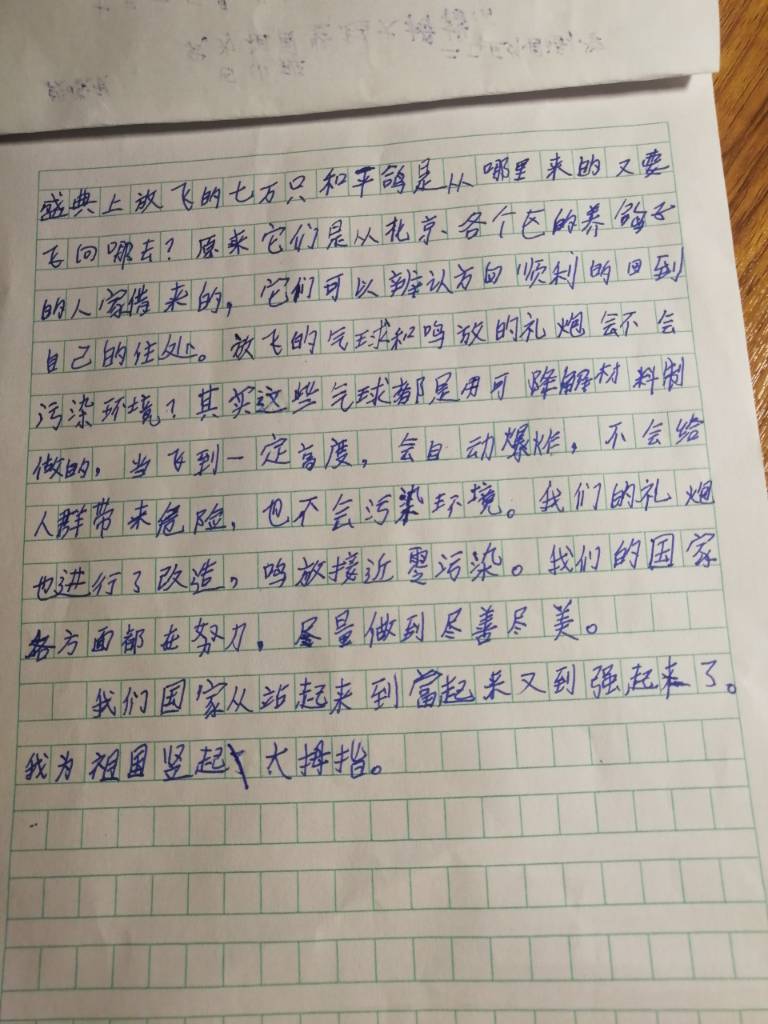 盛典上放飞的七万只和平鸽是从哪里来的又要
飞回哪去？原来它们是从北京、各个区的养鸽子
的人家借来的，它们可以辨认方向顺利的回到
自己的住处。放飞的气球和鸣放的礼炮会不会
污染环境？其实这些气球都是用可降解材料制
做的，当飞到一定高度，会自动爆炸，不会给
人群带来危险，也不会污染环境。我们的礼炮
也进行了改造，鸣放接近零污染。我们的国家
各方面都在努力，尽量做到尽善尽美。
我们国家从站起来到富起来又到强起来了。
我为祖国竖起大拇指。